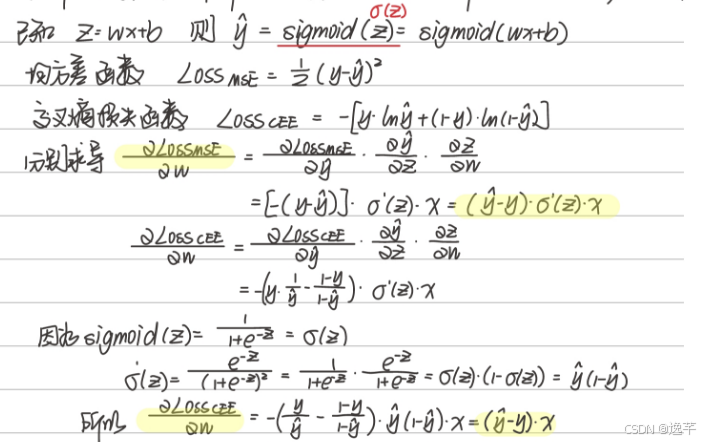 σ(z)
已知 z=wx+b 则 ŷ = sigmoid(z)= sigmoid(wx+b)
均方差函数 LOSS MSE = 1/2 (y-ŷ)²
交叉熵损失函数 LOSS CEE = -[y·lnŷ+(1-y)·ln(1-ŷ)]
分别求导 ∂LOSSMSE/∂w = ∂LOSSMSE/∂ŷ · ∂ŷ/∂z · ∂z/∂w
=[-(y-ŷ)]· σ'(z)·x = (ŷ-y)·σ'(z)·x
∂LOSSCEE/∂w = ∂LOSSCEE/∂ŷ · ∂ŷ/∂z · ∂z/∂w
= -(y·1/ŷ - (1-y)/(1-ŷ))· σ'(z)·x
因为 sigmoid(z)= 1/(1+e^-z) = σ(z)
σ'(z)= e^-z/(1+e^-z)² = 1/(1+e^-z) · e^-z/(1+e^-z) = σ(z)·(1-σ(z)) = ŷ(1-ŷ)
所以 ∂LOSSCEE/∂w = -(y/ŷ - (1-y)/(1-ŷ))·ŷ(1-ŷ)·x = (ŷ-y)·x
CSDN @逸芊